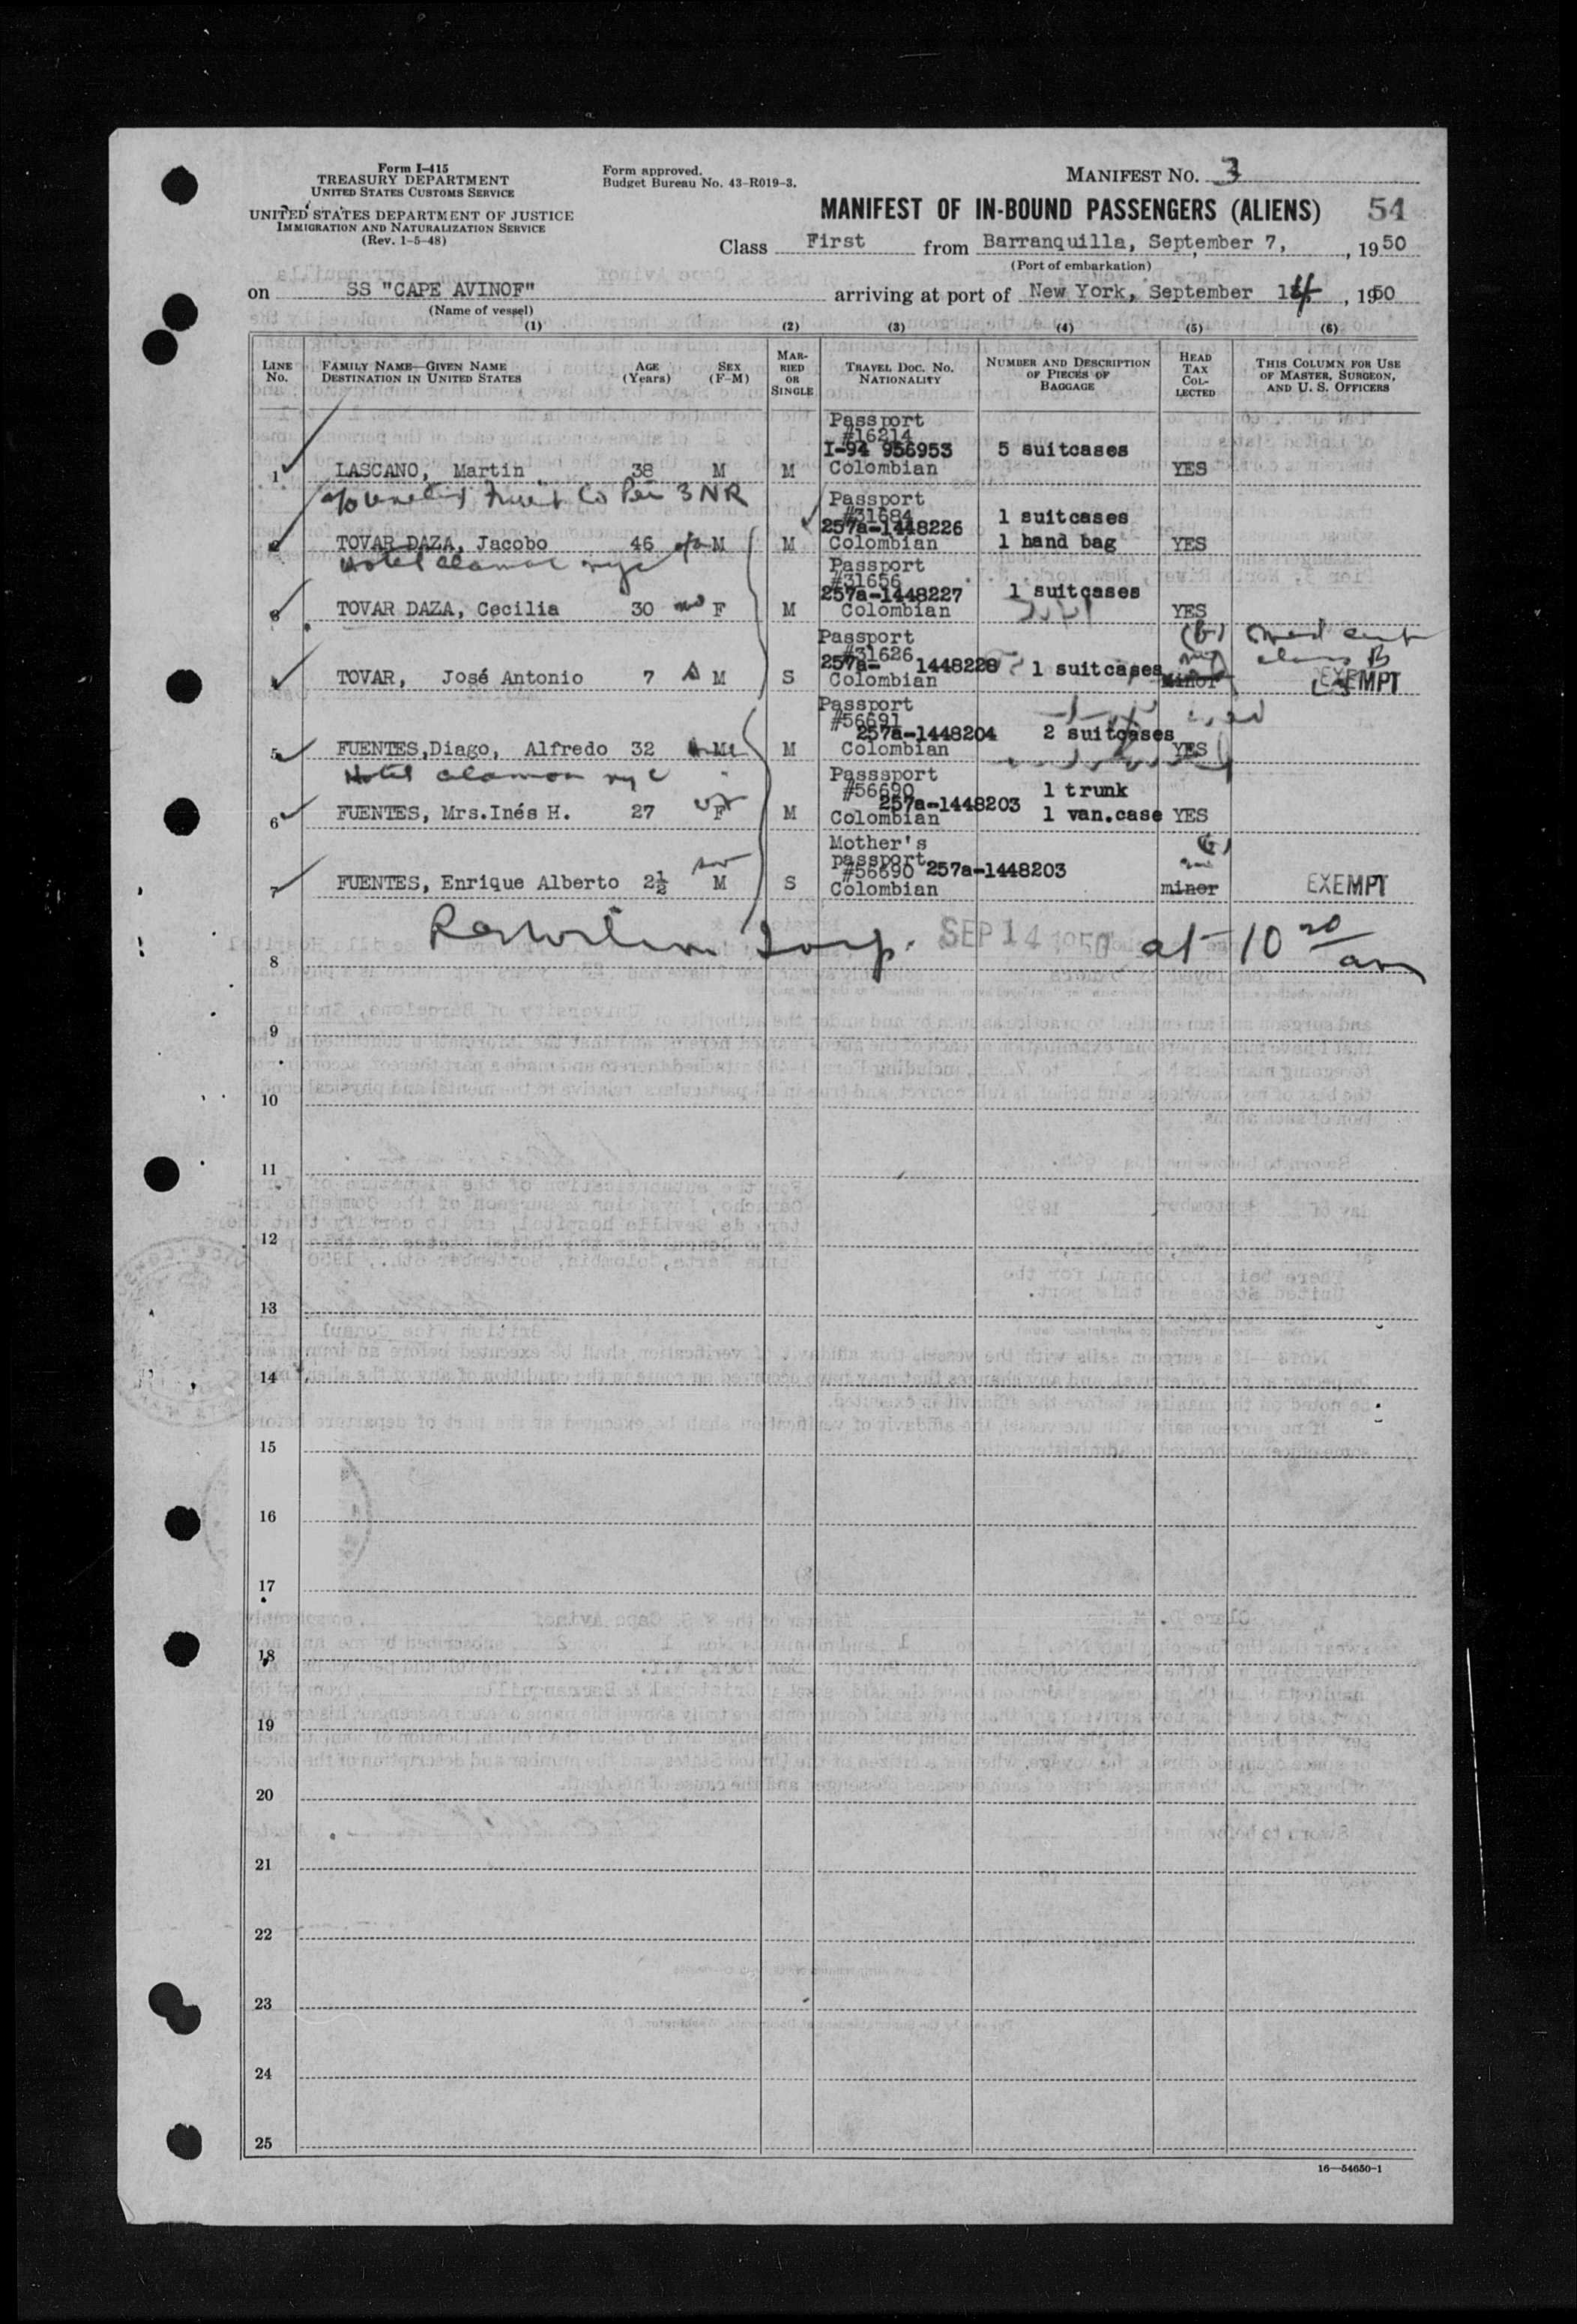 Form I-415
TREASURY DEPARTMENT
UNITED STATES CUSTOMS SERVICE
UNITED STATES DEPARTMENT OF JUSTICE
IMMIGRATION AND NATURALIZATION SERVICE
(Rev. 1-5-48)
Form approved.
Budget Bureau No. 43-R019-3.
MANIFEST NO. 3
MANIFEST OF IN-BOUND PASSENGERS (ALIENS) 54
Class First from Barranquilla, September 7, , 1950
(Port of embarkation)
on SS "CAPE AVINOF" arriving at port of New York, September 14 , 1950
(Name of vessel)
(1) (2) (3) (4) (5) (6)
LINE No.
FAMILY NAME—GIVEN NAME
DESTINATION IN UNITED STATES
AGE (Years)
SEX (F-M)
MARRIED OR SINGLE
TRAVEL DOC. NO.
NATIONALITY
NUMBER AND DESCRIPTION OF PIECES OF BAGGAGE
HEAD TAX COLLECTED
THIS COLUMN FOR USE OF MASTER, SURGEON, AND U. S. OFFICERS
Passport
#16214
I-94 956953 5 suitcases
1 LASCANO, Martin 38 M M Colombian YES
c/o United Fruit Co Pier 3 NR
Passport
#31684 1 suitcases
257a-1448226
2 TOVAR DAZA, Jacobo 46 M M Colombian 1 hand bag YES
Hotel Alamac nyc
Passport
#31656
257a-1448227 1 suitcases
3 TOVAR DAZA, Cecilia 30 F M Colombian YES
Passport
#31626
257a- 1448228 1 suitcases
4 TOVAR, José Antonio 7 M S Colombian minor EXEMPT
Passport
#56691
257a-1448204 2 suitcases
5 FUENTES,Diago, Alfredo 32 M M Colombian YES
Hotel Alamac nyc
Passsport
#56690 1 trunk
257a-1448203
6 FUENTES, Mrs.Inés H. 27 F M Colombian 1 van.case YES
Mother's
passport
#56690 257a-1448203
7 FUENTES, Enrique Alberto 2½ M S Colombian minor EXEMPT
SEP 14 1950 at 10 20 am
8
9
10
11
12
13
14
15
16
17
18
19
20
21
22
23
24
25
16—54650-1